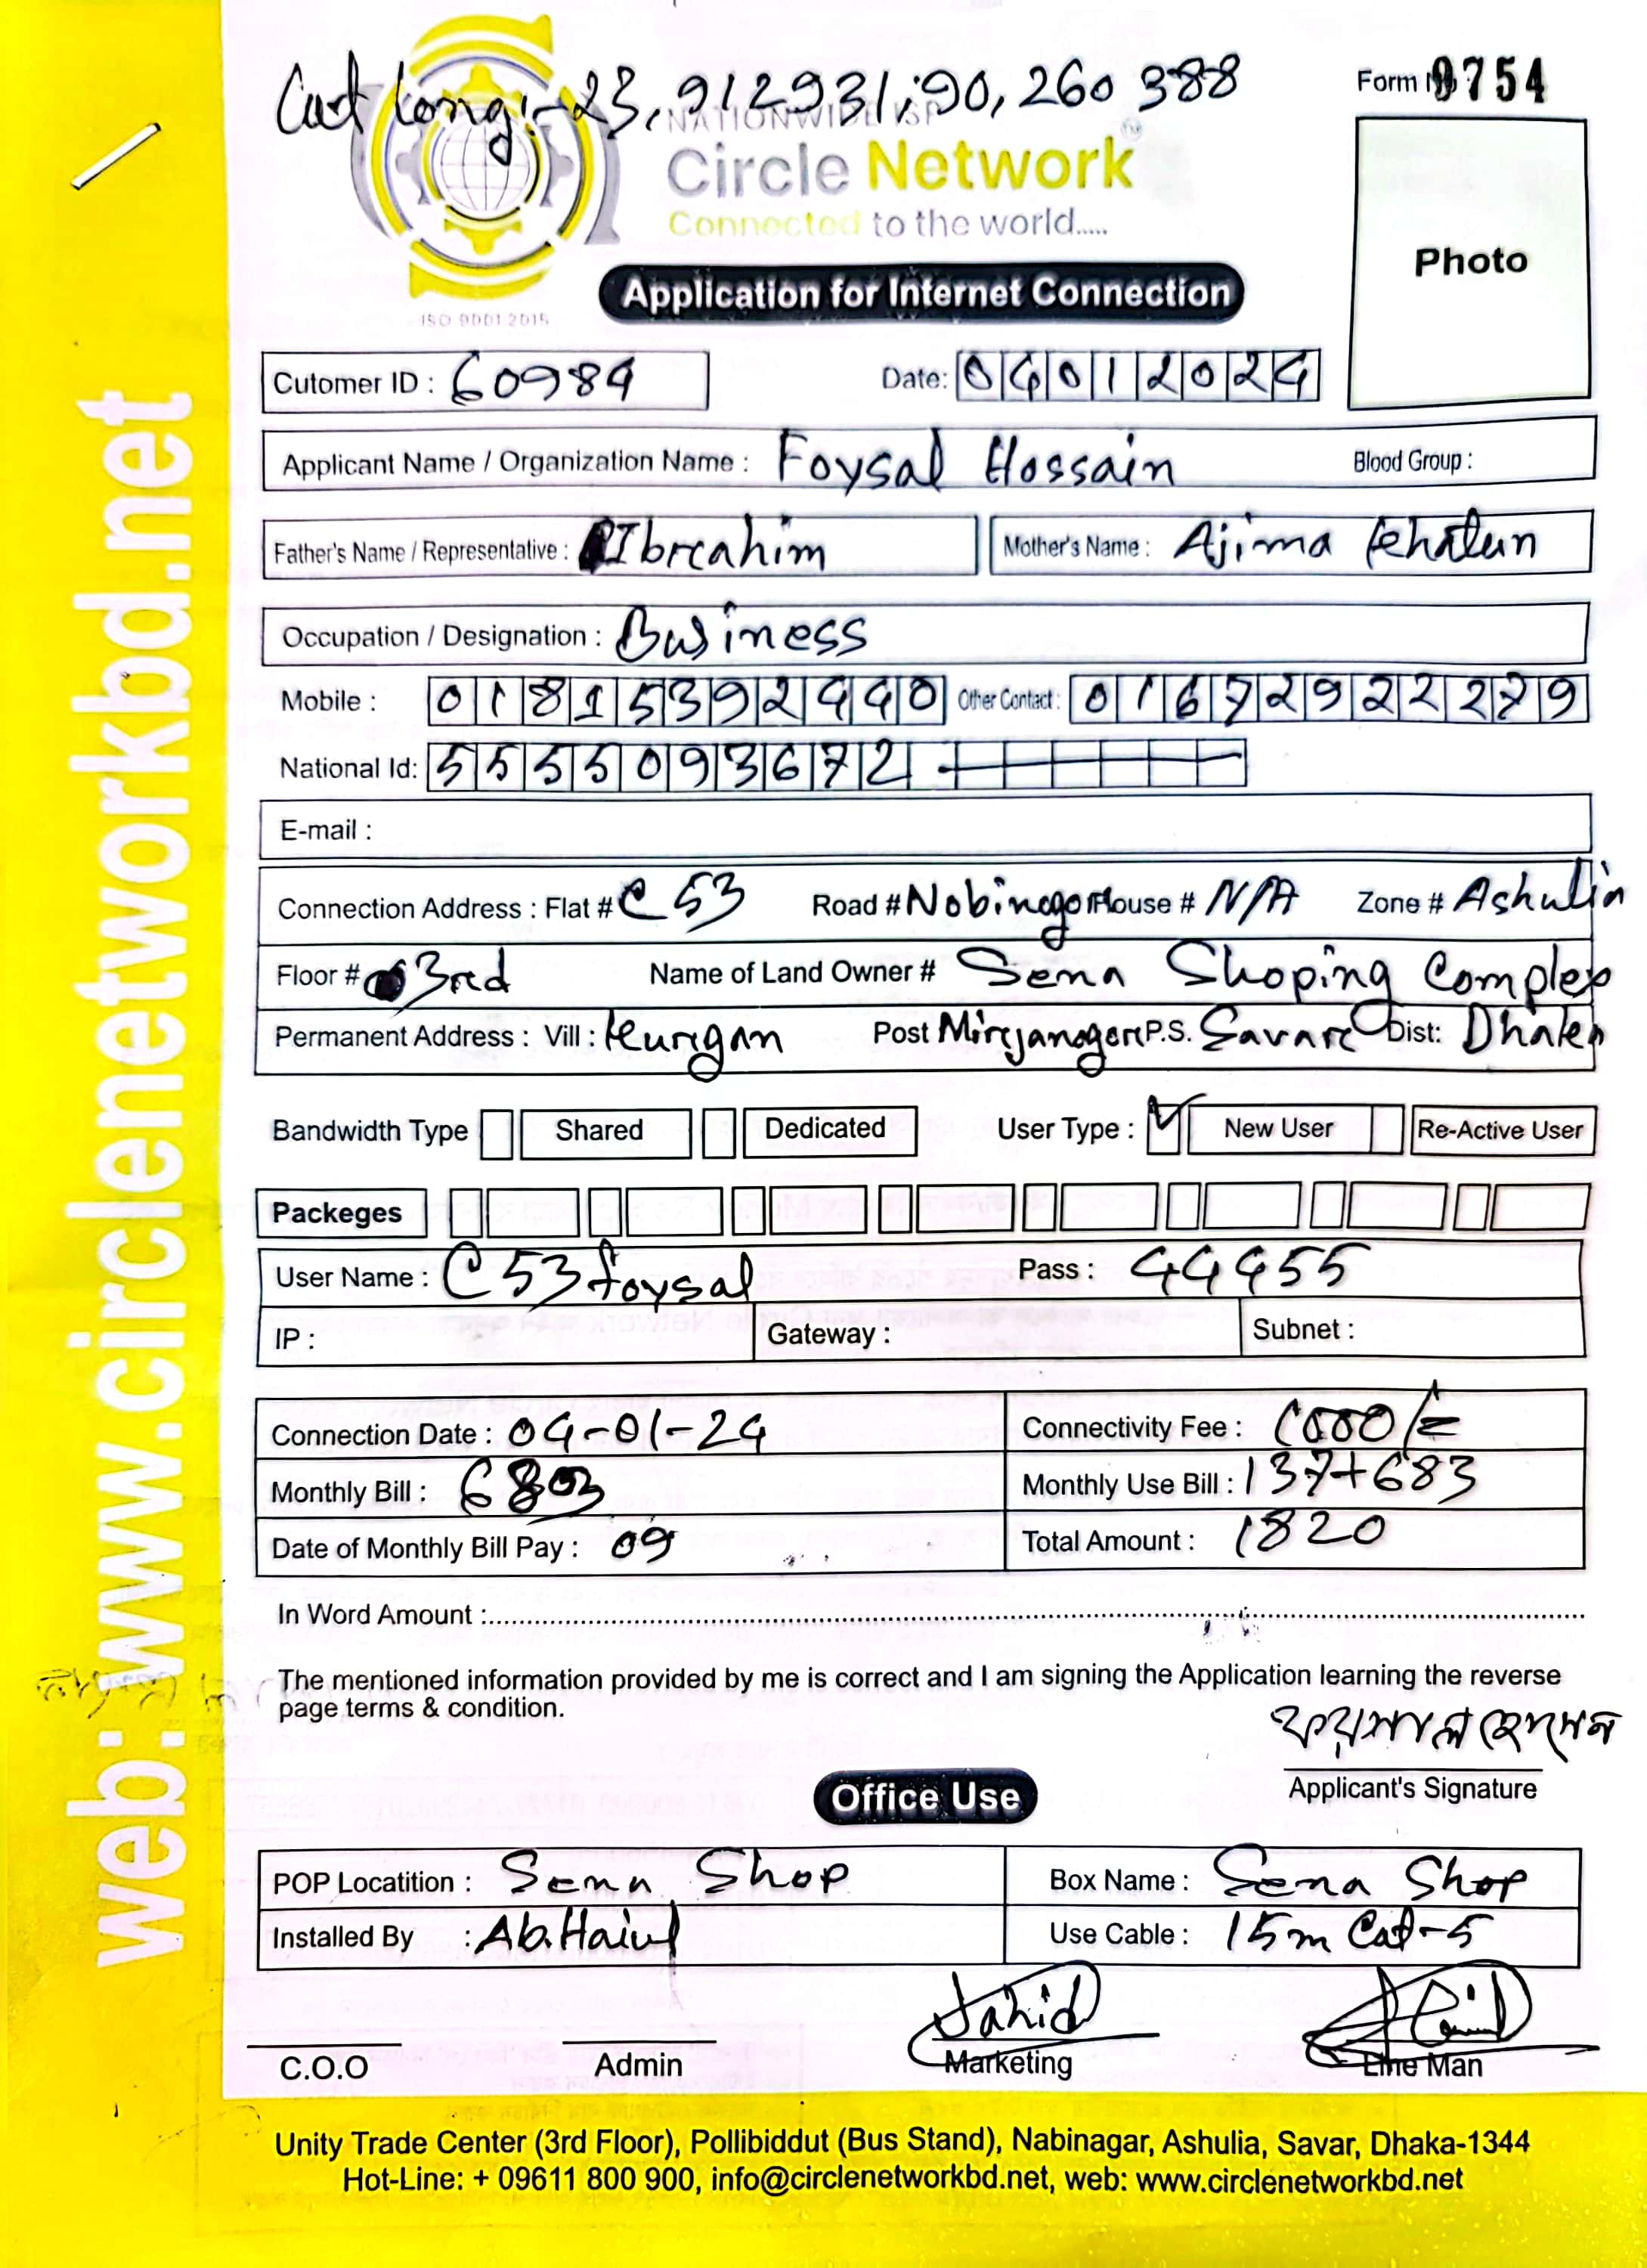 Cat Long:- 23,912931,90,260388
Form No 9754
NATIONWIDE ISP
Circle Network
Connected to the world.....
Photo
ISO 9001:2015
Application for Internet Connection
Cutomer ID : 60984 Date: 04012024
Applicant Name / Organization Name : Foysal Hossain Blood Group :
Father's Name / Representative : Ibrahim Mother's Name : Ajima Khatun
Occupation / Designation : Business
Mobile : 01815392440 Other Contact : 01672922279
National Id: 5550093672
E-mail :
Connection Address : Flat # C 53 Road # Nobinogor House # N/A Zone # Ashulia
Floor # 3rd Name of Land Owner # Sena Shoping Complex
Permanent Address : Vill : Kurgan Post Mirjanogor P.S. Savar Dist: Dhaka
Bandwidth Type Shared Dedicated User Type : New User Re-Active User
Packeges
User Name : C53foysal Pass : 44455
IP : Gateway : Subnet :
Connection Date : 04-01-24 Connectivity Fee : 1000/=
Monthly Bill : 683 Monthly Use Bill : 137+683
Date of Monthly Bill Pay : 09 Total Amount : 1820
In Word Amount :
The mentioned information provided by me is correct and I am signing the Application learning the reverse
page terms & condition.
ফয়সাল হোসেন
Applicant's Signature
Office Use
POP Locatition : Sena Shop Box Name : Sena Shop
Installed By : Ab. Haiul Use Cable : 15m Cat-5
Jahid
C.O.O Admin Marketing Line Man
Unity Trade Center (3rd Floor), Pollibiddut (Bus Stand), Nabinagar, Ashulia, Savar, Dhaka-1344
Hot-Line: + 09611 800 900, info@circlenetworkbd.net, web: www.circlenetworkbd.net
web: www.circlenetworkbd.net